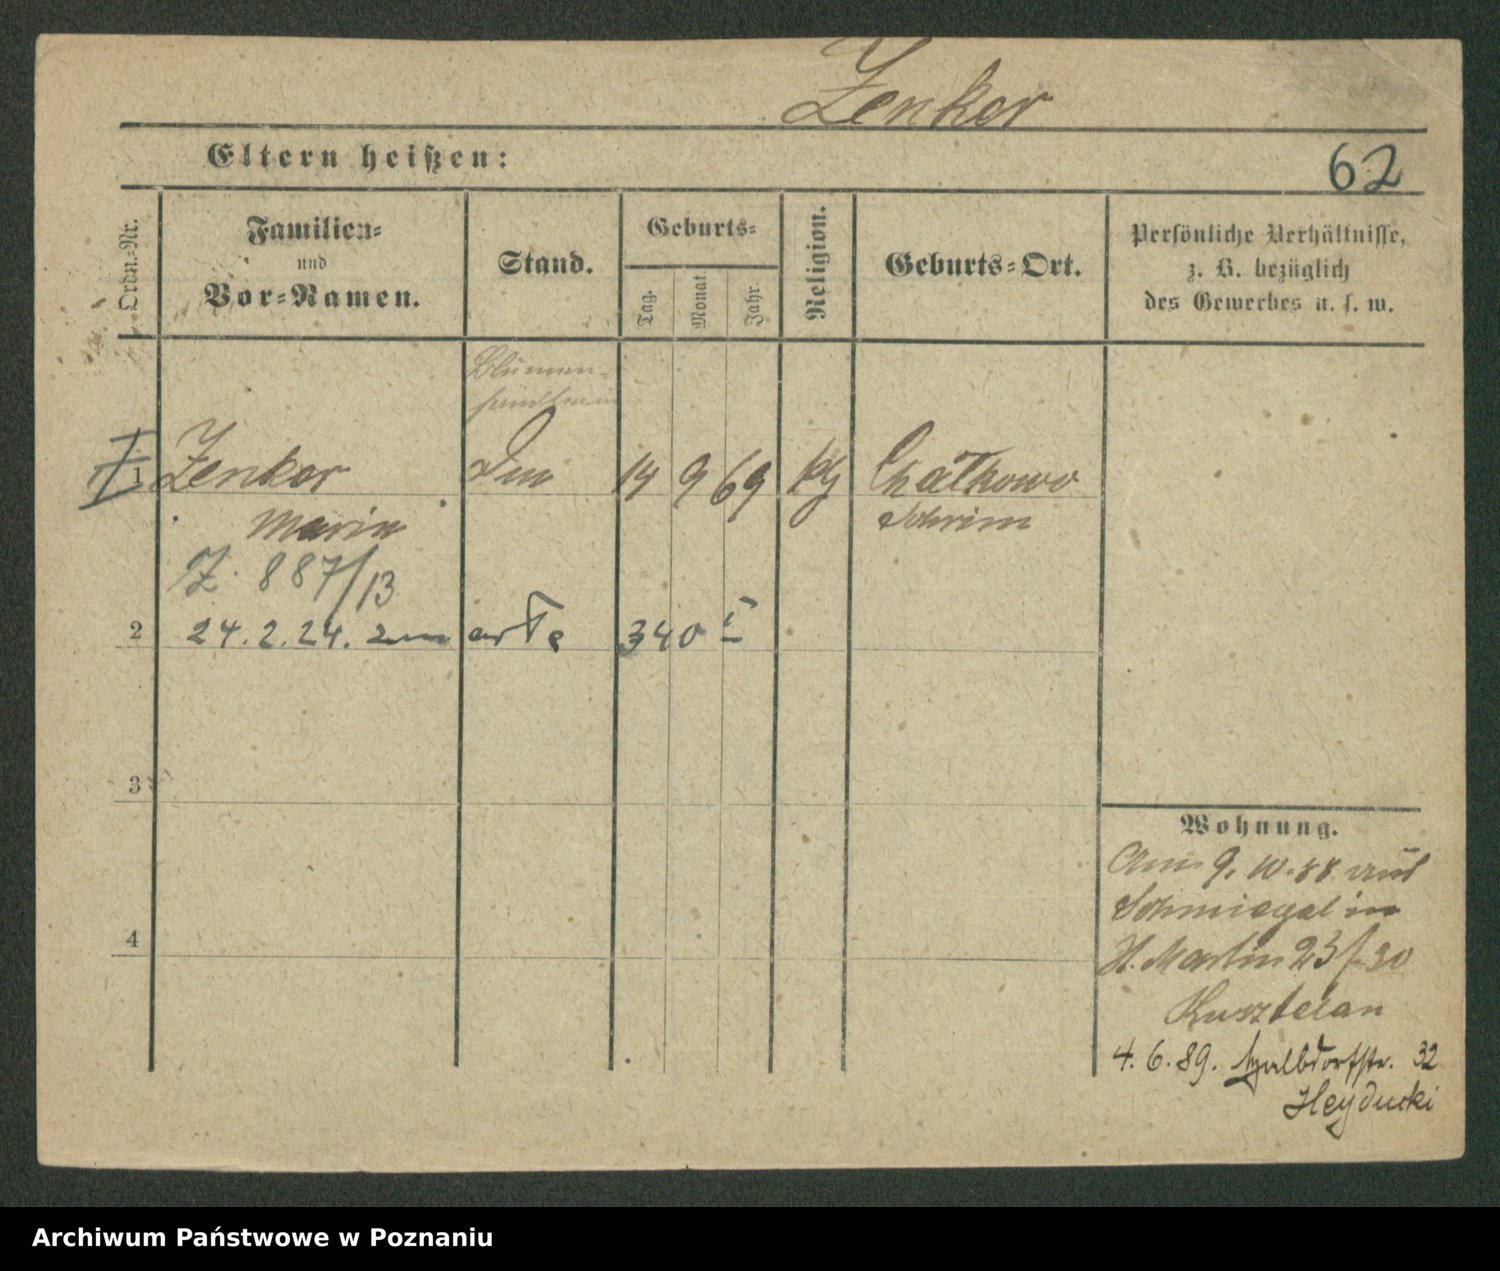 Zenker
Eltern heißen:
62
Ordn.-Nr.
Familien-
und
Vor-Namen.
Stand.
Geburts-
Tag.
Monat.
Jahr.
Religion.
Geburts-Ort.
Persönliche Verhältnisse,
z. B. bezüglich
des Gewerbes u. s. w.
Blumen-
I
1 Zenker 14 9 69 Chalkowo
Maria Schrim
Z. 887/13
2 24.2.24. 340
3
4
Wohnung.
Am 9. 10. 88 aus
Schmiegel in
St. Martin 23 f. 30
Kusztelan
4. 6. 89. Halbdorfstr. 32
Heyducki
Archiwum Państwowe w Poznaniu